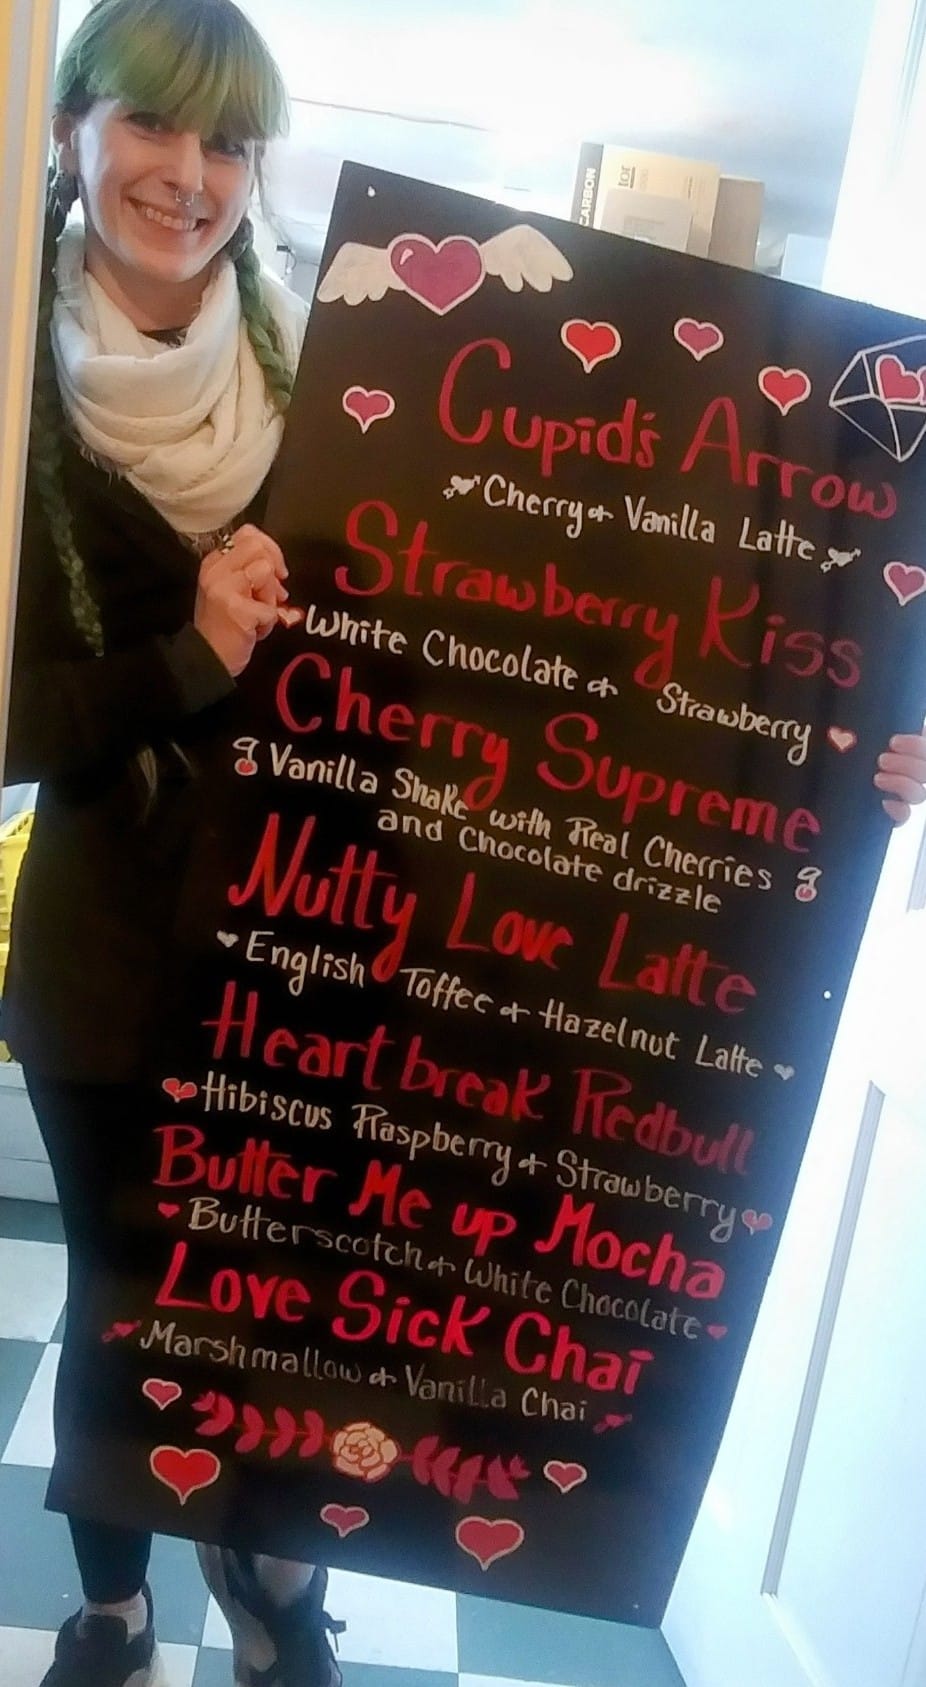 CARBON
tor
Cupid's Arrow
Cherry & Vanilla Latte
Strawberry Kiss
White Chocolate & Strawberry
Cherry Supreme
Vanilla Shake with Real Cherries
and Chocolate drizzle
Nutty Love Latte
English Toffee & Hazelnut Latte
Heartbreak Redbull
Hibiscus Raspberry & Strawberry
Butter Me up Mocha
Butterscotch & White Chocolate
Love Sick Chai
Marshmallow & Vanilla Chai